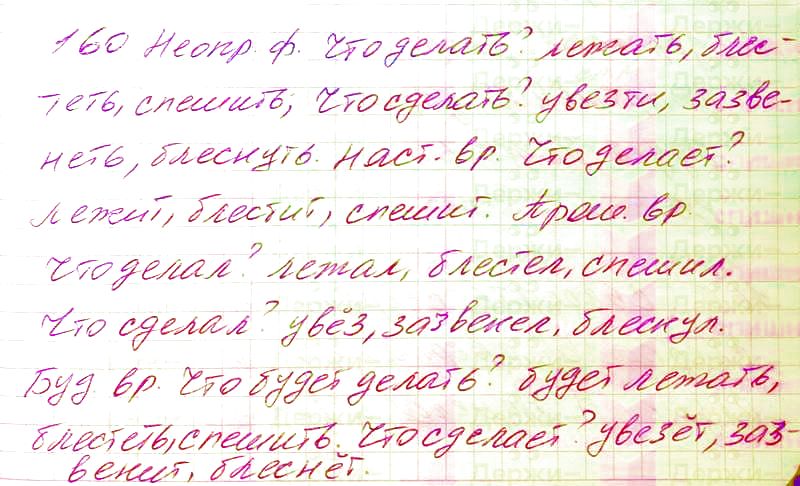 160 Неопр. ф. Что делать? лежать, блес-
теть, спешить, Что сделать? увезти, зазве-
неть, блеснуть. Наст. вр. Что делает?
лежит, блестит, спешит. Прош. вр.
Что делал? лежал, блестел, спешил.
Что сделал? увёз, зазвенел, блеснул.
Буд. вр. Что будет делать? будет лежать,
блестеть, спешить. Что сделает? увезёт, заз-
венит, блеснёт.